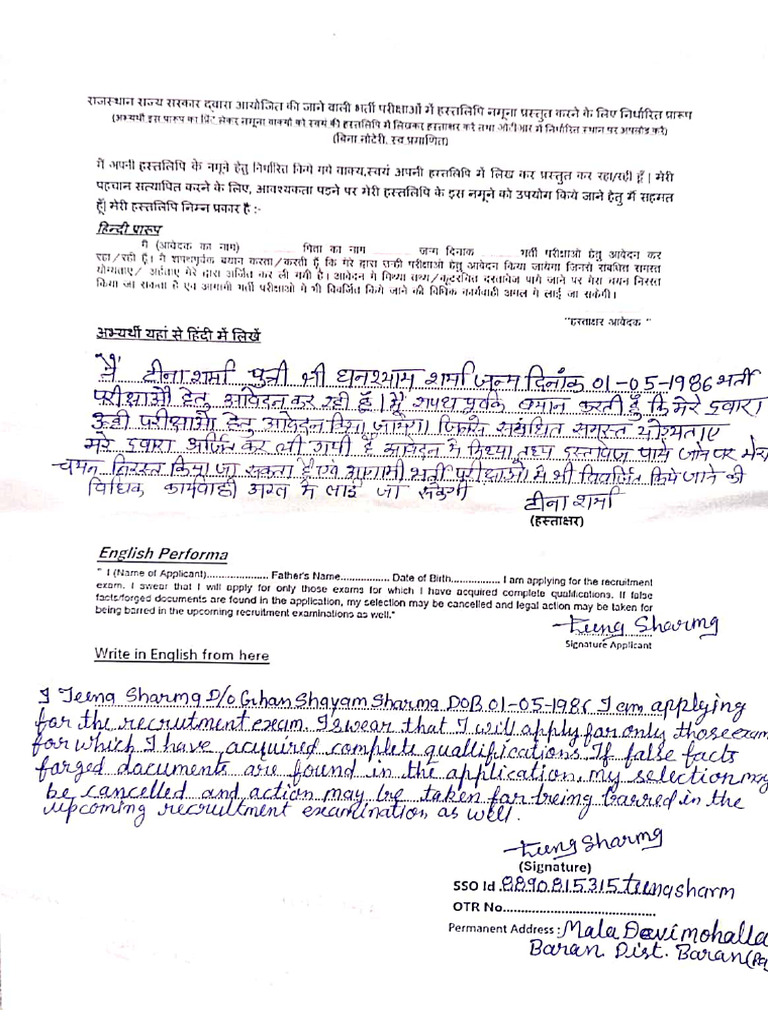 राजस्थान राज्य सरकार द्वारा आयोजित की जाने वाली भर्ती परीक्षाओं में हस्तलिपि नमूना प्रस्तुत करने के लिए निर्धारित प्रारूप
(अभ्यर्थी इस प्रारूप का प्रिंट लेकर नमूना वाक्यों को स्वयं की हस्तलिपि में लिखकर हस्ताक्षर करे तथा ओटीआर में निर्धारित स्थान पर अपलोड करें)
(बिना नोटेरी, स्व प्रमाणित)
मैं अपनी हस्तलिपि के नमूने हेतु निर्धारित किये गये वाक्य,स्वयं अपनी हस्तलिपि में लिख कर प्रस्तुत कर रहा/रही हूँ। मेरी
पहचान सत्यापित करने के लिए, आवश्यकता पड़ने पर मेरी हस्तलिपि के इस नमूने को उपयोग किये जाने हेतु मैं सहमत
हूँ। मेरी हस्तलिपि निम्न प्रकार है :-
हिन्दी प्रारूप
मैं (आवेदक का नाम) .................... पिता का नाम .................... जन्म दिनांक .................... भर्ती परीक्षाओ हेतु आवेदन कर
रहा /रही हूँ। मै शपथपूर्वक बयान करता/करती हूँ कि मेरे द्वारा उन्ही परीक्षाओ हेतु आवेदन किया जायेगा जिनसे संबंधित समस्त
योग्यताए/ अर्हताए मेरे द्वारा अर्जित कर ली गयी है। आवेदन मे मिथ्या तथ्य/कूटरचित दस्तावेज पाये जाने पर मेरा चयन निरस्त
किया जा सकता है एवं आगामी भर्ती परीक्षाओ मे भी विवर्जित किये जाने की विधिक कार्यवाही अमल मे लाई जा सकेगी।
"हस्ताक्षर आवेदक "
अभ्यर्थी यहां से हिंदी में लिखें
"मैं टीना शर्मा पुत्री श्री घनश्याम शर्मा जन्म दिनांक 01-05-1986 भर्ती
परीक्षाओ हेतु आवेदन कर रही हूँ। मैं शपथ पूर्वक बयान करती हूँ कि मेरे द्वारा
उन्ही परीक्षाओ हेतु आवेदन किया जायेगा जिनसे संबंधित समस्त योग्यताए
मेरे द्वारा अर्जित कर ली गयी है आवेदन मे मिथ्या तथ्य दस्तावेज पाये जाने पर मेरा
चयन निरस्त किया जा सकता है एवं आगामी भर्ती परीक्षाओ मे भी विवर्जित किये जाने की
विधिक कार्यवाही अमल मे लाई जा सकेगी
टीना शर्मा
(हस्ताक्षर)
English Performa
" I (Name of Applicant).................... Father's Name................ Date of Birth................ I am applying for the recruitment
exam. I swear that I will apply for only those exams for which I have acquired complete qualifications. If false
facts/forged documents are found in the application, my selection may be cancelled and legal action may be taken for
being barred in the upcoming recruitment examinations as well."
Teena Sharma
Signature Applicant
Write in English from here
I Teena Sharma D/o Ghan Shayam Sharma DOB 01-05-1986 I am applying
for the recrutment exam. I swear that I will apply for only those exam
for which I have acquired complete quallifications. If false facts
forged documents are found in the application, my selection may
be cancelled and action may be taken for being barred in the
upcoming recruitment examination as well.
Teena Sharma
(Signature)
SSO Id 8890815315teenasharm
OTR No..........................................
Permanent Address : Mala Devi mohalla
Baran Dist. Baran